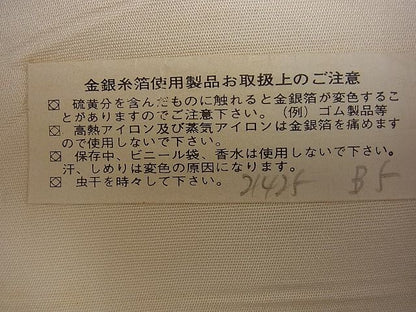 金銀糸箔使用製品お取扱上のご注意
☒ 硫黄分を含んだものに触れると金銀箔が変色するこ
とがありますのでご注意下さい。(例)ゴム製品等
☒ 高熱アイロン及び蒸気アイロンは金銀箔を痛めます
ので使用しないで下さい。
☒ 保存中、ビニール袋、香水は使用しないで下さい。
汗、しめりは変色の原因になります。
☒ 虫干を時々して下さい。 21425 B5